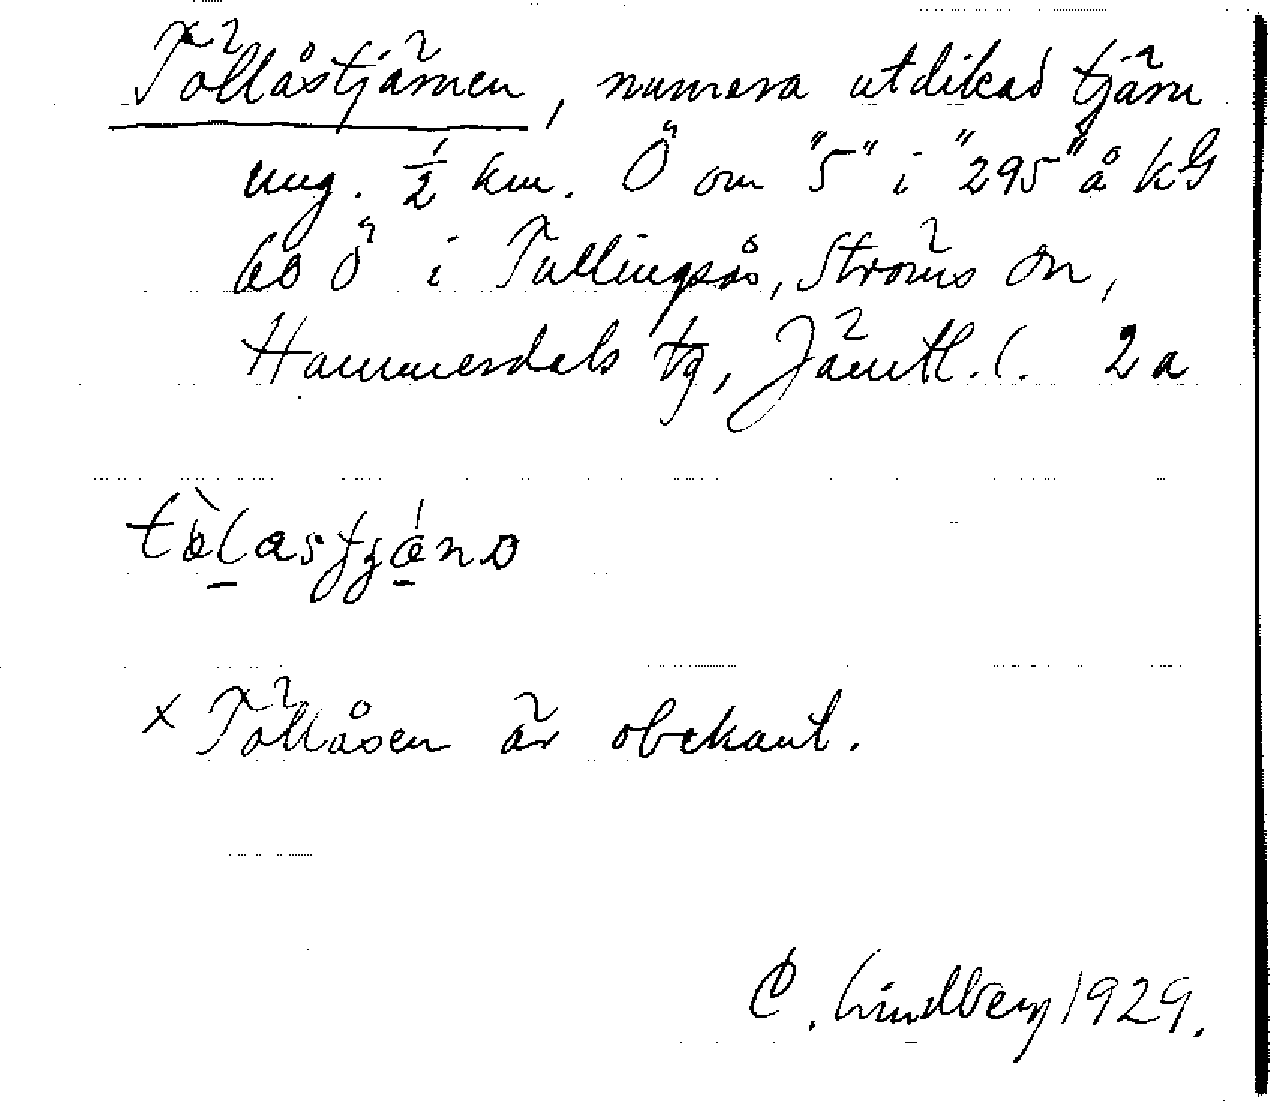 Töllåstjärnen, numera utdikad tjärn
ung. 1/2 km. Ö om "5" i "295" å kG
60 Ö i Tullingsås, Ströms sn,
Hammerdals tg, Jämtl. l. 2a
× Töllåsen är obekant.
C. Lindberg 1929.